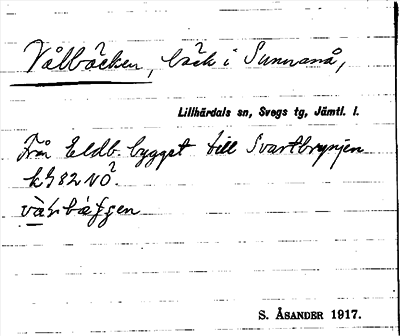 Vålbäcken, bäck i Sunnanå,
Lillhärdals sn, Svegs tg, Jämtl. l.
Från Eldb. bygget till Svartbrynjen
S. ÅSANDER 1917.